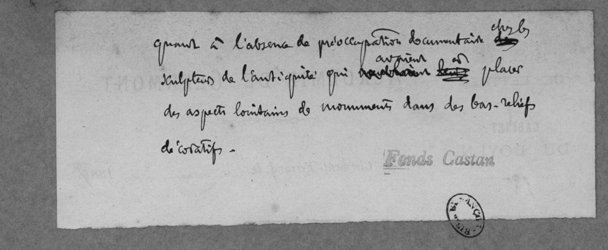 quant à l'absence de préoccupation documentaire chez les
sculpteurs de l'antiquité qui avaient placer
des aspects lointains de monuments dans des bas-reliefs
décoratifs.
Fonds Castan